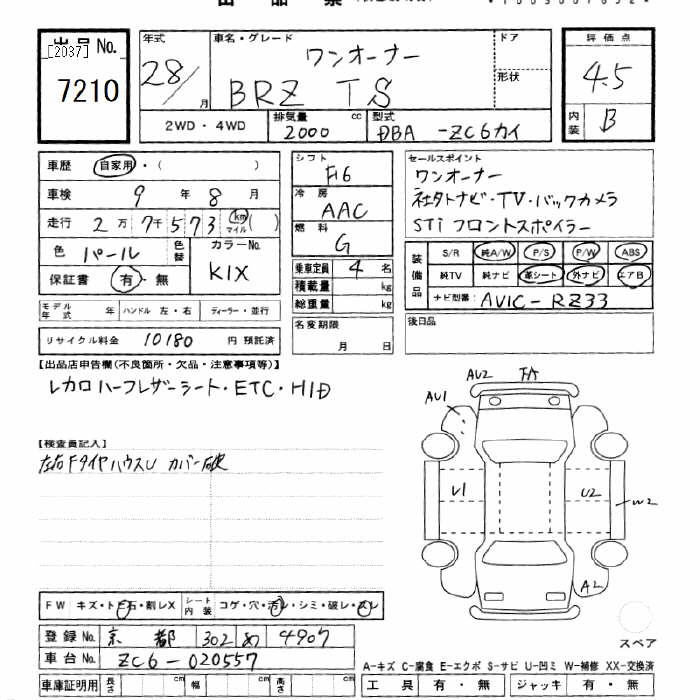 出品票
[2037]
出品 No.
7210
年式
28/
月
車名・グレード
ワンオーナー
BRZ TS
ドア
形状
評価点
4.5
内装
B
2WD・4WD
排気量
cc
2000
型式
DBA -ZC6カイ
車歴 自家用・( )
車検 9年8月
走行 2万7千573 km マイル ( )
色 パール 色替
カラーNo.
K1X
保証書 有・無
モデル年式 年 ハンドル 左・右 ディーラー・並行
リサイクル料金 10180 円 預託済
シフト
F16
冷房
AAC
燃料
G
乗車定員 4 名
積載量 kg
総重量 kg
名変期限
月 日
セールスポイント
ワンオーナー
社外ナビ・TV・バックカメラ
STi フロントスポイラー
装備品
S/R 純A/W P/S P/W ABS
純TV 純ナビ 革シート 外ナビ エアB
ナビ型番: AVIC-RZ33
後日品
【出品店申告欄(不良箇所・欠品・注意事項等)】
レカロハーフレザーシート・ETC・HID
【検査員記入】
左右FタイヤハウスU カバー破
AU2
FA
AU1
U1
U2
W2
A2
スペア
FW キズ・トビ石・割レX
シート内装 コゲ・穴・汚レ・シミ・破レ・スレ
登録No. 京都 302 め 4907
車台No. ZC6-020557
車庫証明用 長さ cm 幅 cm 高さ cm
A-キズ C-腐食 E-エクボ S-サビ U-凹ミ W-補修 XX-交換済
工具 有・無 ジャッキ 有・無